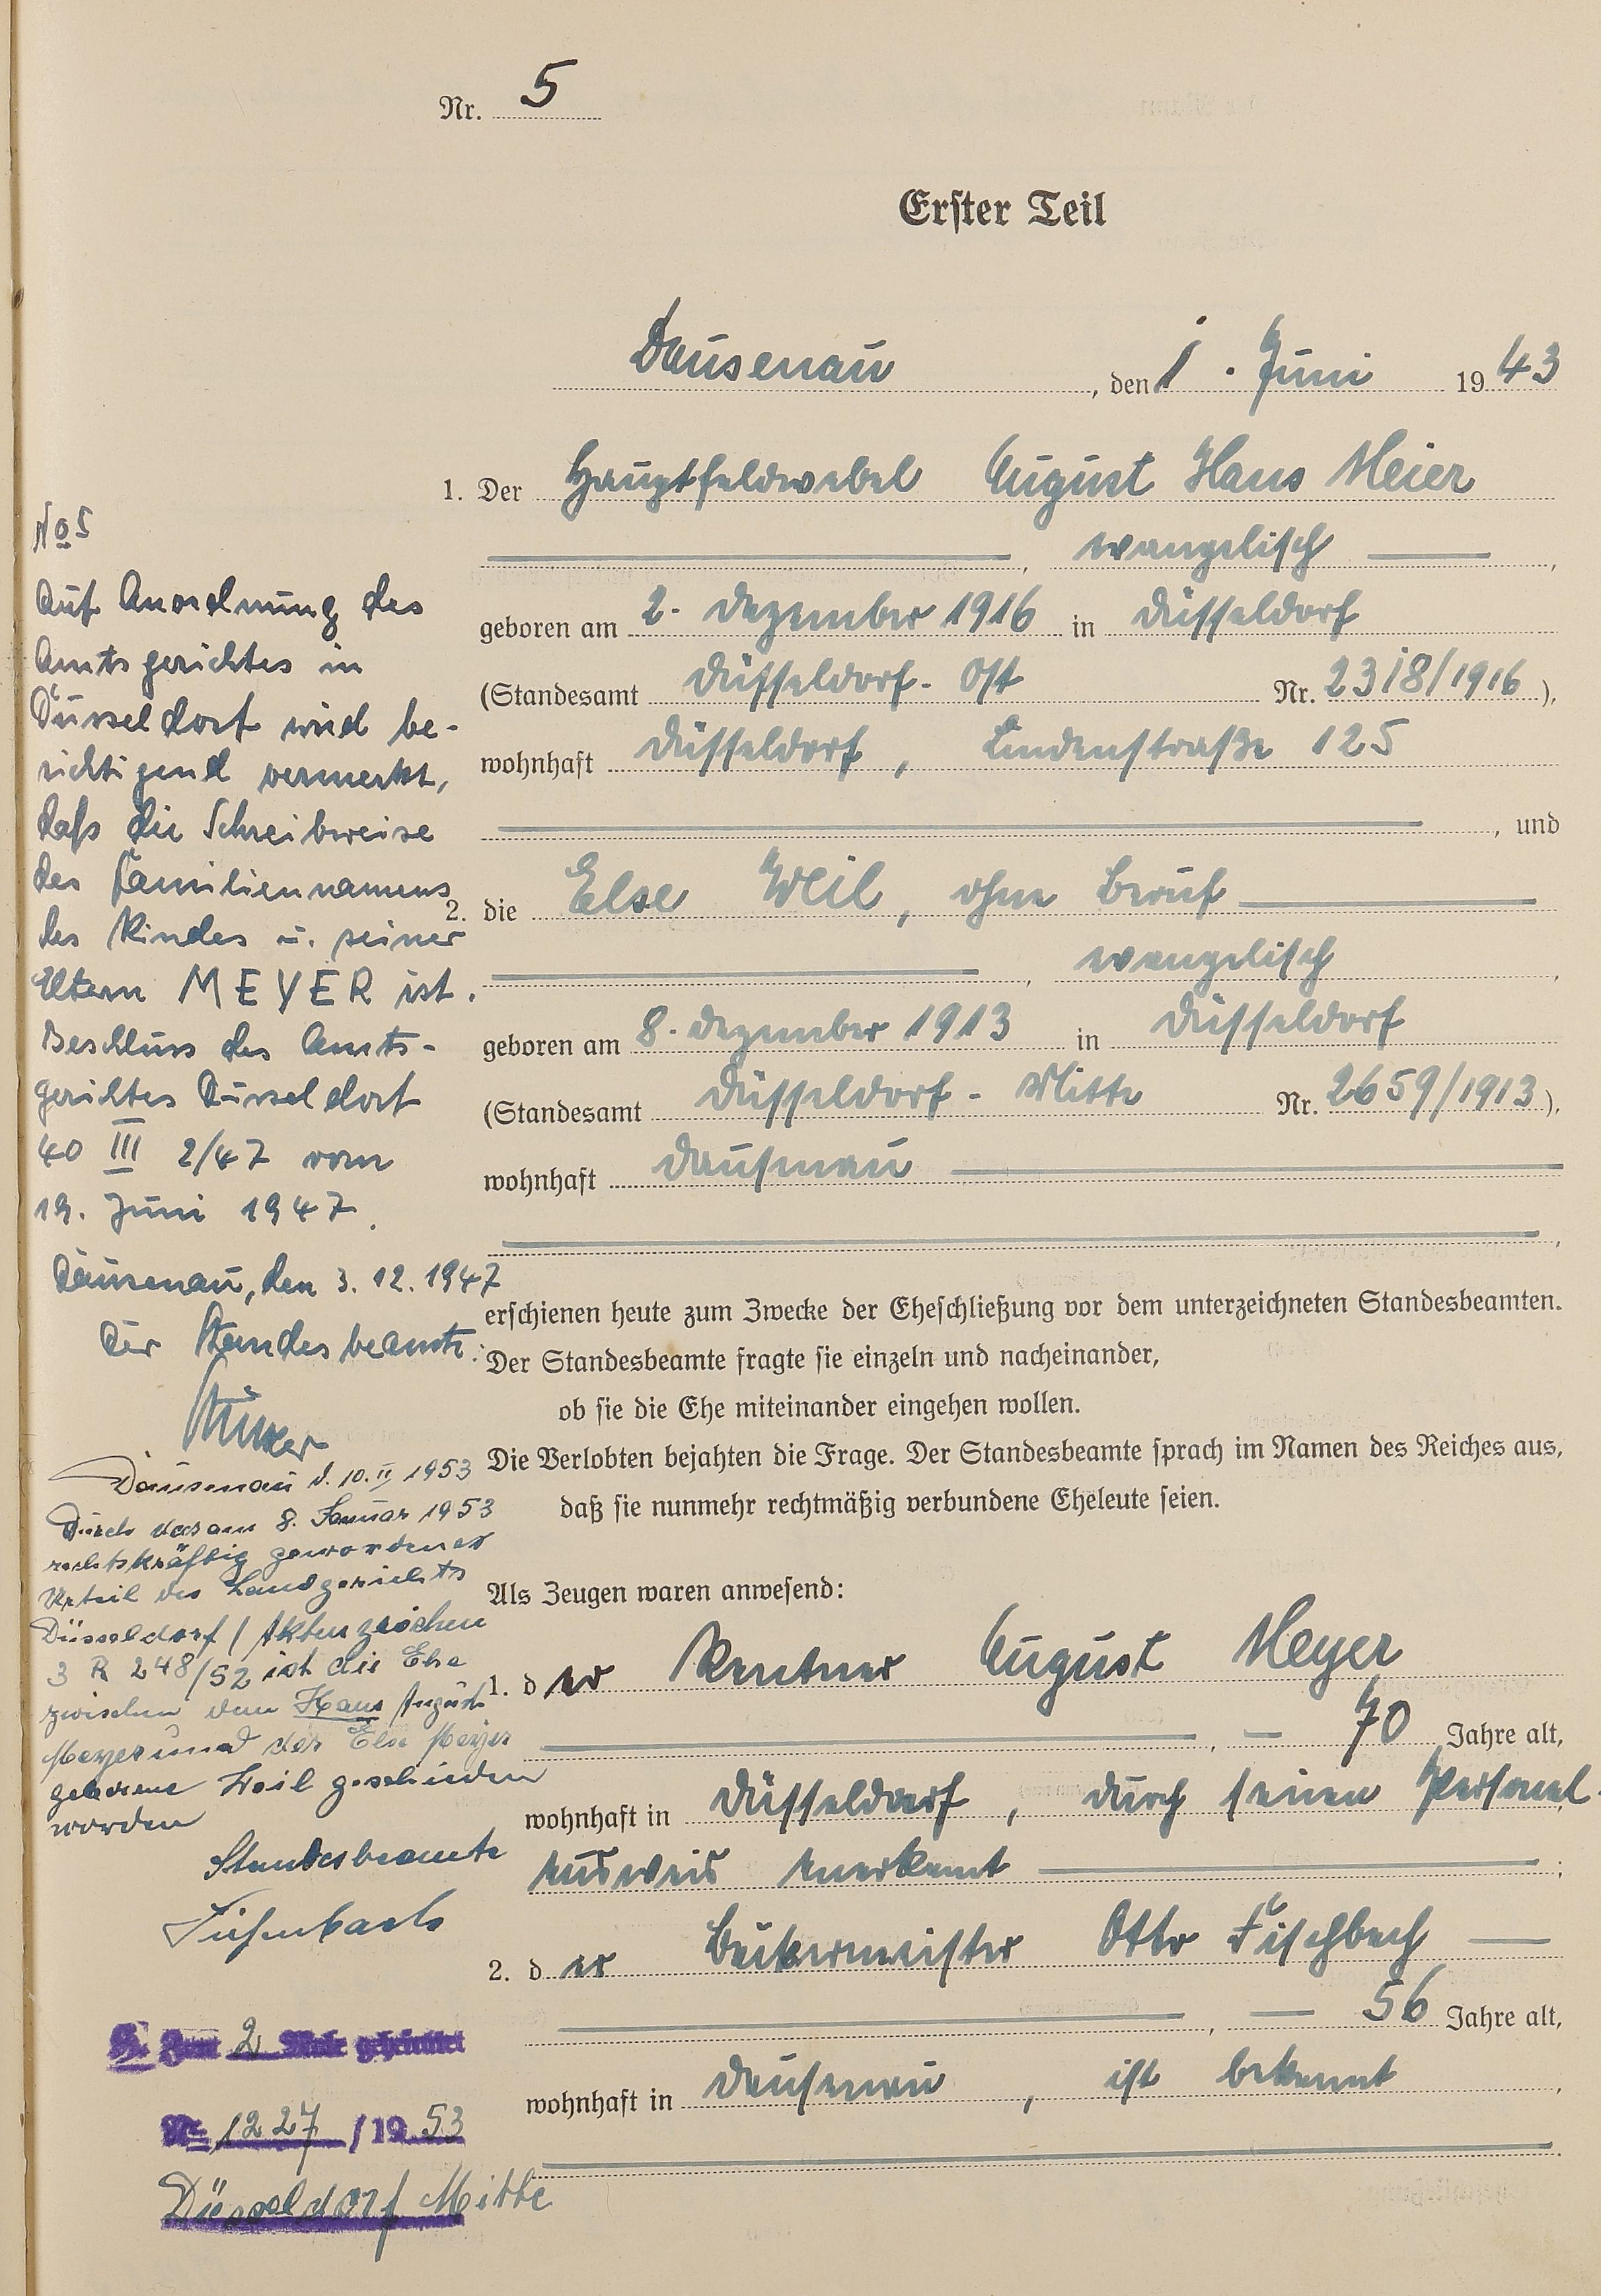 Nr. 5
Erster Teil
Dausenau, den 1. Juni 1943
1. Der Hauptfeldwebel August Hans Meier
, evangelisch ,
geboren am 2. Dezember 1916 in Düsseldorf
(Standesamt Düsseldorf-Ost Nr. 2318/1916),
wohnhaft Düsseldorf, Lindenstraße 125
, und
2. die Else Weil, ohne Beruf
, evangelisch ,
geboren am 8. Dezember 1913 in Düsseldorf
(Standesamt Düsseldorf-Mitte Nr. 2659/1913),
wohnhaft Dausenau
,
erschienen heute zum Zwecke der Eheschließung vor dem unterzeichneten Standesbeamten.
Der Standesbeamte fragte sie einzeln und nacheinander,
ob sie die Ehe miteinander eingehen wollen.
Die Verlobten bejahten die Frage. Der Standesbeamte sprach im Namen des Reiches aus,
daß sie nunmehr rechtmäßig verbundene Eheleute seien.
Als Zeugen waren anwesend:
1. der Rentner August Meyer
, 70 Jahre alt,
wohnhaft in Düsseldorf, durch seinen Personal-
ausweis anerkannt ;
2. der Bäckermeister Otto Fischbach
, 56 Jahre alt,
wohnhaft in Dausenau, ist bekannt ,
.
No 5
Auf Anordnung des
Amtsgerichtes in
Düsseldorf wird be-
richtigend vermerkt,
daß die Schreibweise
des Familiennamens
des Kindes u. seiner
Eltern MEYER ist.
Beschluss des Amts-
gerichtes Düsseldorf
40 III 2/47 vom
19. Juni 1947.
Dausenau, den 3.12.1947
Der Standesbeamte:
Dausenau d. 10. II 1953
Durch das am 8. Januar 1953
rechtskräftig gewordenes
Urteil des Landgerichts
Düsseldorf / Aktenzeichen
3 R 248/52 ist die Ehe
zwischen dem Hans August
Meyer und der Else Meyer
geborene Weil geschieden
worden
Standesbeamte
Tiefenbach
H. Zum 2 Male geheiratet
Nr. 1227/1953
Düsseldorf Mitte